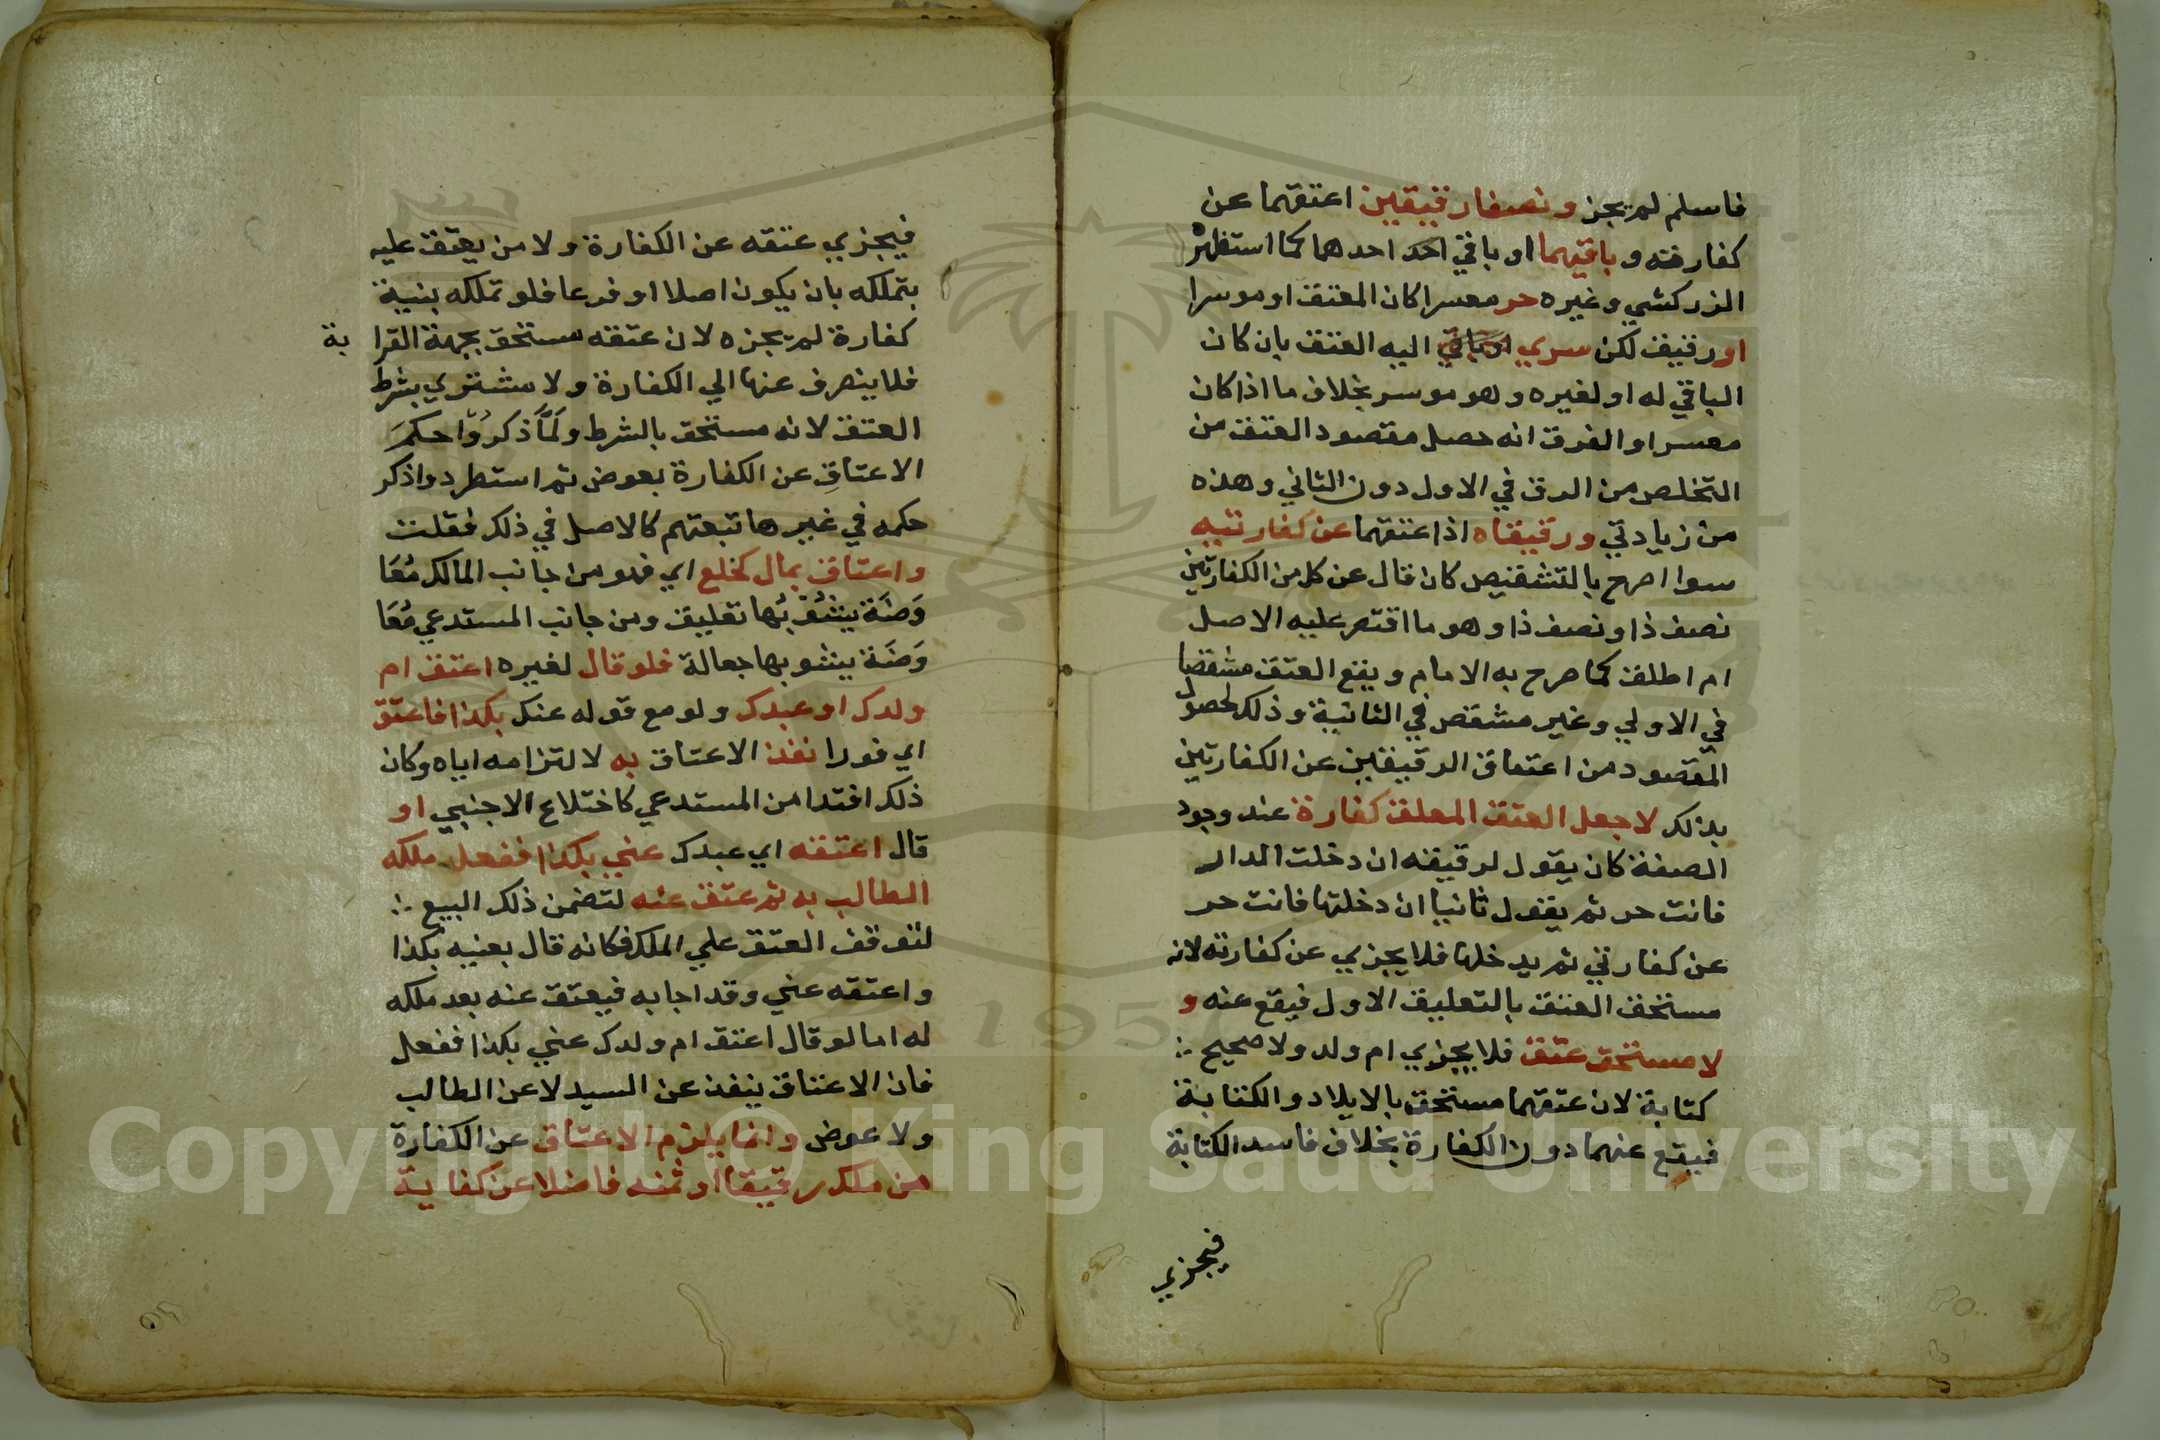 فاسلم لم يجز ونصفا رقيقين اعتقهما عن
كفارته وباقيهما او باقي احد احدهما كما استظهره
الزركشي وغيره حر معسرا كان المعتق او موسرا
او رقيق لكن سري اليه العتق بان كان
الباقي له او لغيره وهو موسر بخلاف ما اذا كان
معسرا والفرق انه حصل مقصود العتق من
التخلص من الرق في الاول دون الثاني وهذه
من زيادتي ورقيقاه اذا عتقهما عن كفارتيه
سوا اصرح بالتشقيص كان قال عن كل من الكفارتين
نصف ذا ونصف ذا وهو ما اقتصر عليه الاصل
ام اطلق كما صرح به الامام ويقع العتق مشقصا
في الاولي وغير مشقص في الثانية وذلك لحصول
المقصود من اعتاق الرقيقين عن الكفارتين
بذلك لا جعل العتق المعلق كفارة عند وجود
الصفة كان يقول لرقيقه ان دخلت الدار
فانت حر ثم يقول ثانيا ان دخلتها فانت حر
عن كفارتي ثم يدخلها فلا يجزي عن كفارته لانه
مستحق العتق بالتعليق الاول فيقع عنه و
لا مستحق عتق فلا يجزي ام ولد ولا صحيح
كتابة لان عتقهما مستحق بالايلاد والكتابة
فيقع عنهما دون الكفارة بخلاف فاسد الكتابة
فيجزي
فيجزي عتقه عن الكفارة ولا من يعتق عليه
بتملكه بان يكون اصلا او فرعا فلو تملكه بنية
كفارة لم يجزه لان عتقه مستحق بجهة القرابة
فلا ينصرف عنها الي الكفارة ولا مشتري بشرط
العتق لانه مستحق بالشرط ولَمَّا ذكرُوا حكمَ
الاعتاقِ عن الكفارة بعوض ثم استطردوا ذكر
حكمه في غيرها تبعتهم كالاصل في ذلك فقلت
واعتاق بمال كخلع اي فهو من جانب المالك مُعَا
وَضَة يشُوبُها تعليق ومن جانب المستدعي مُعَا
وَضَة يشوبها جعالة فلو قال لغيره اعتق ام
ولدك او عبدك ولو مع قوله عنك بكذا فاعتق
اي فورا نفذ الاعتاق به لالتزامه اياه وكان
ذلك افتدا من المستدعي كاختلاع الاجنبي او
قال اعتقه اي عبدك عني بكذا ففعل ملكه
الطالب به ثم عتق عنه لتضمن ذلك البيع
لتوقف العتق علي الملك فكانه قال بعنيه بكذا
واعتقه عني وقد اجابه فيعتق عنه بعد ملكه
له اما لو قال اعتق ام ولدك عني بكذا ففعل
فان الاعتاق ينفذ عن السيد لا عن الطالب
ولا عوض وانما يلزم الاعتاق عن الكفارة
من ملك رقيقا او ثمنه فاضلا عن كفاية
Copyright © King Saud University
1957